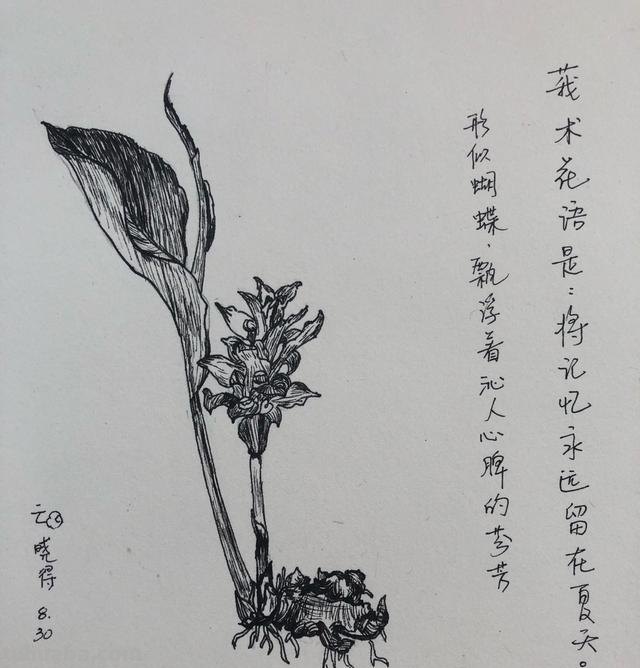 莪术花语是：将记忆永远留在夏天。
形似蝴蝶，飘浮着沁人心脾的芬芳
云
晓得
8.
30